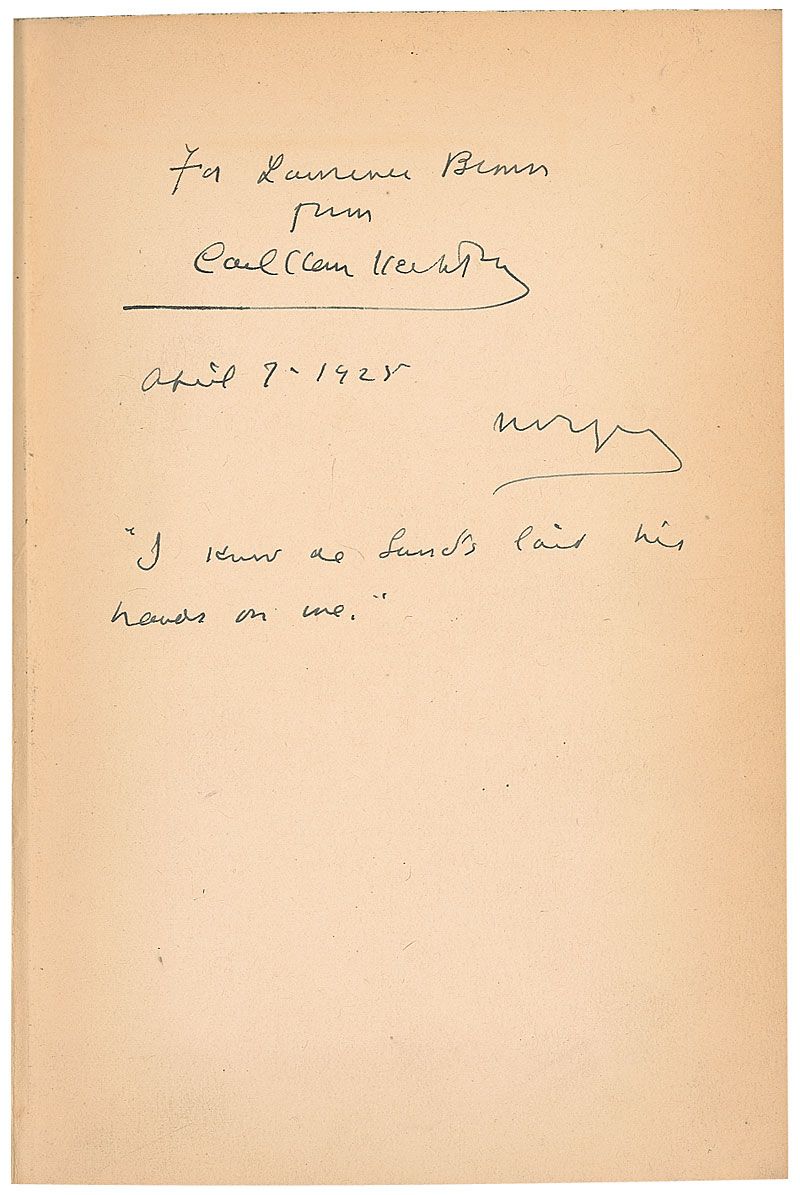 For Lawrence Brown
from
Carl Van Vechten
April 7 - 1925
New York
"I know de Lord's laid his
hands on me."